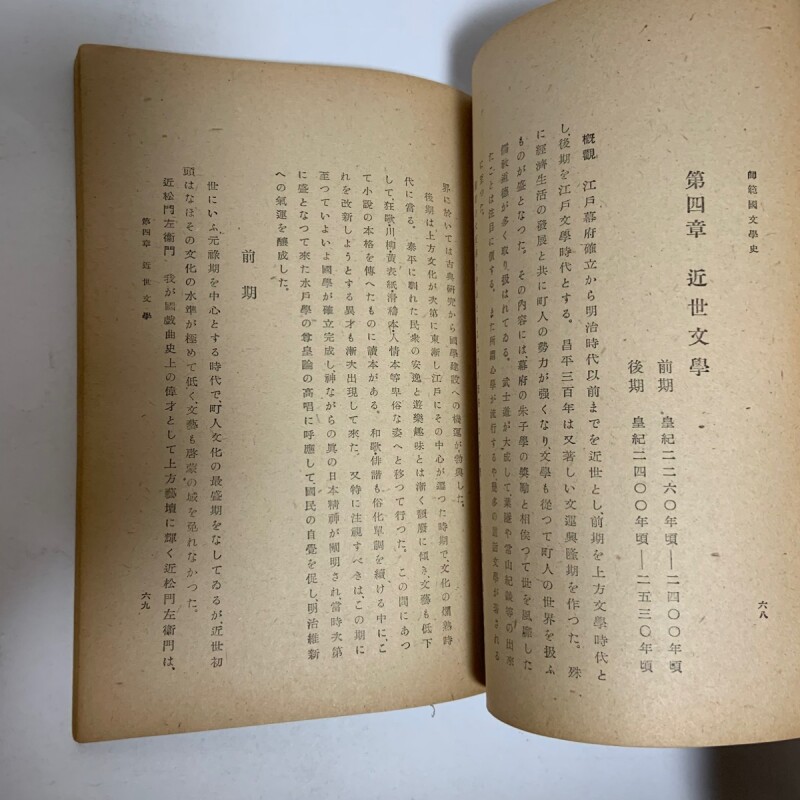 師範國文學史
六八
第四章 近世文學
前期 皇紀二二六〇年頃―二四〇〇年頃
後期 皇紀二四〇〇年頃―二五三〇年頃
概觀 江戸幕府確立から明治時代以前までを近世とし、前期を上方文學時代と
し、後期を江戸文學時代とする。昌平三百年は又著しい文運興隆期を作つた。殊
に經濟生活の發展と共に町人の勢力が強くなり、文學も從つて町人の世界を扱ふ
ものが盛となつた。その内容には、幕府の朱子學の奬勵と相俟つて世を風靡した
儒敎道德が多く取り扱はれてゐる。武士道が大成して、葉隱や常山紀談等の出來
たことは注目に値する。また所謂心學が流行する
界に於いては古典研究から國學建設への機運が勃興した。
後期は上方文化が次第に東漸し江戸にその中心が遷つた時期で、文化の爛熟時
代に當る。泰平に馴れた民衆の安逸と遊樂趣味とは漸く頽廢に傾き、文藝も低下
して、狂歌・川柳・黄表紙・滑稽本・人情本等卑俗な姿へと移つて行つた。この間にあつ
て小説の本格を傳へたものに讀本がある。和歌・俳諧も俗化單調を續ける中に、こ
れを改新しようとする異才も漸次出現して來た。又特に注視すべきは、この期に
至つていよいよ國學が確立完成し神ながらの眞の日本精神が闡明され、當時次第
に盛となつて來た水戸學の尊皇論の高唱に呼應して、國民の自覺を促し、明治維新
への氣運を釀成した。
前期
世にいふ元祿期を中心とする時代で、町人文化の最盛期をなしてゐるが、近世初
頭はなほその文化の水準が極めて低く、文藝も啓蒙の域を免れなかつた。
近松門左衞門 我が國戲曲史上の偉才として上方藝壇に輝く近松門左衞門は、
第四章 近世文學
六九